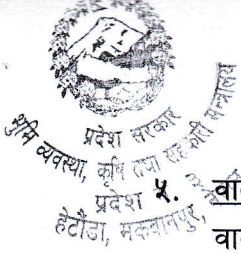 प्रदेश सरकार
भूमि व्यवस्था, कृषि तथा सहकारी मन्त्रालय
प्रदेश
हेटौंडा, मकवानपुर,
५.